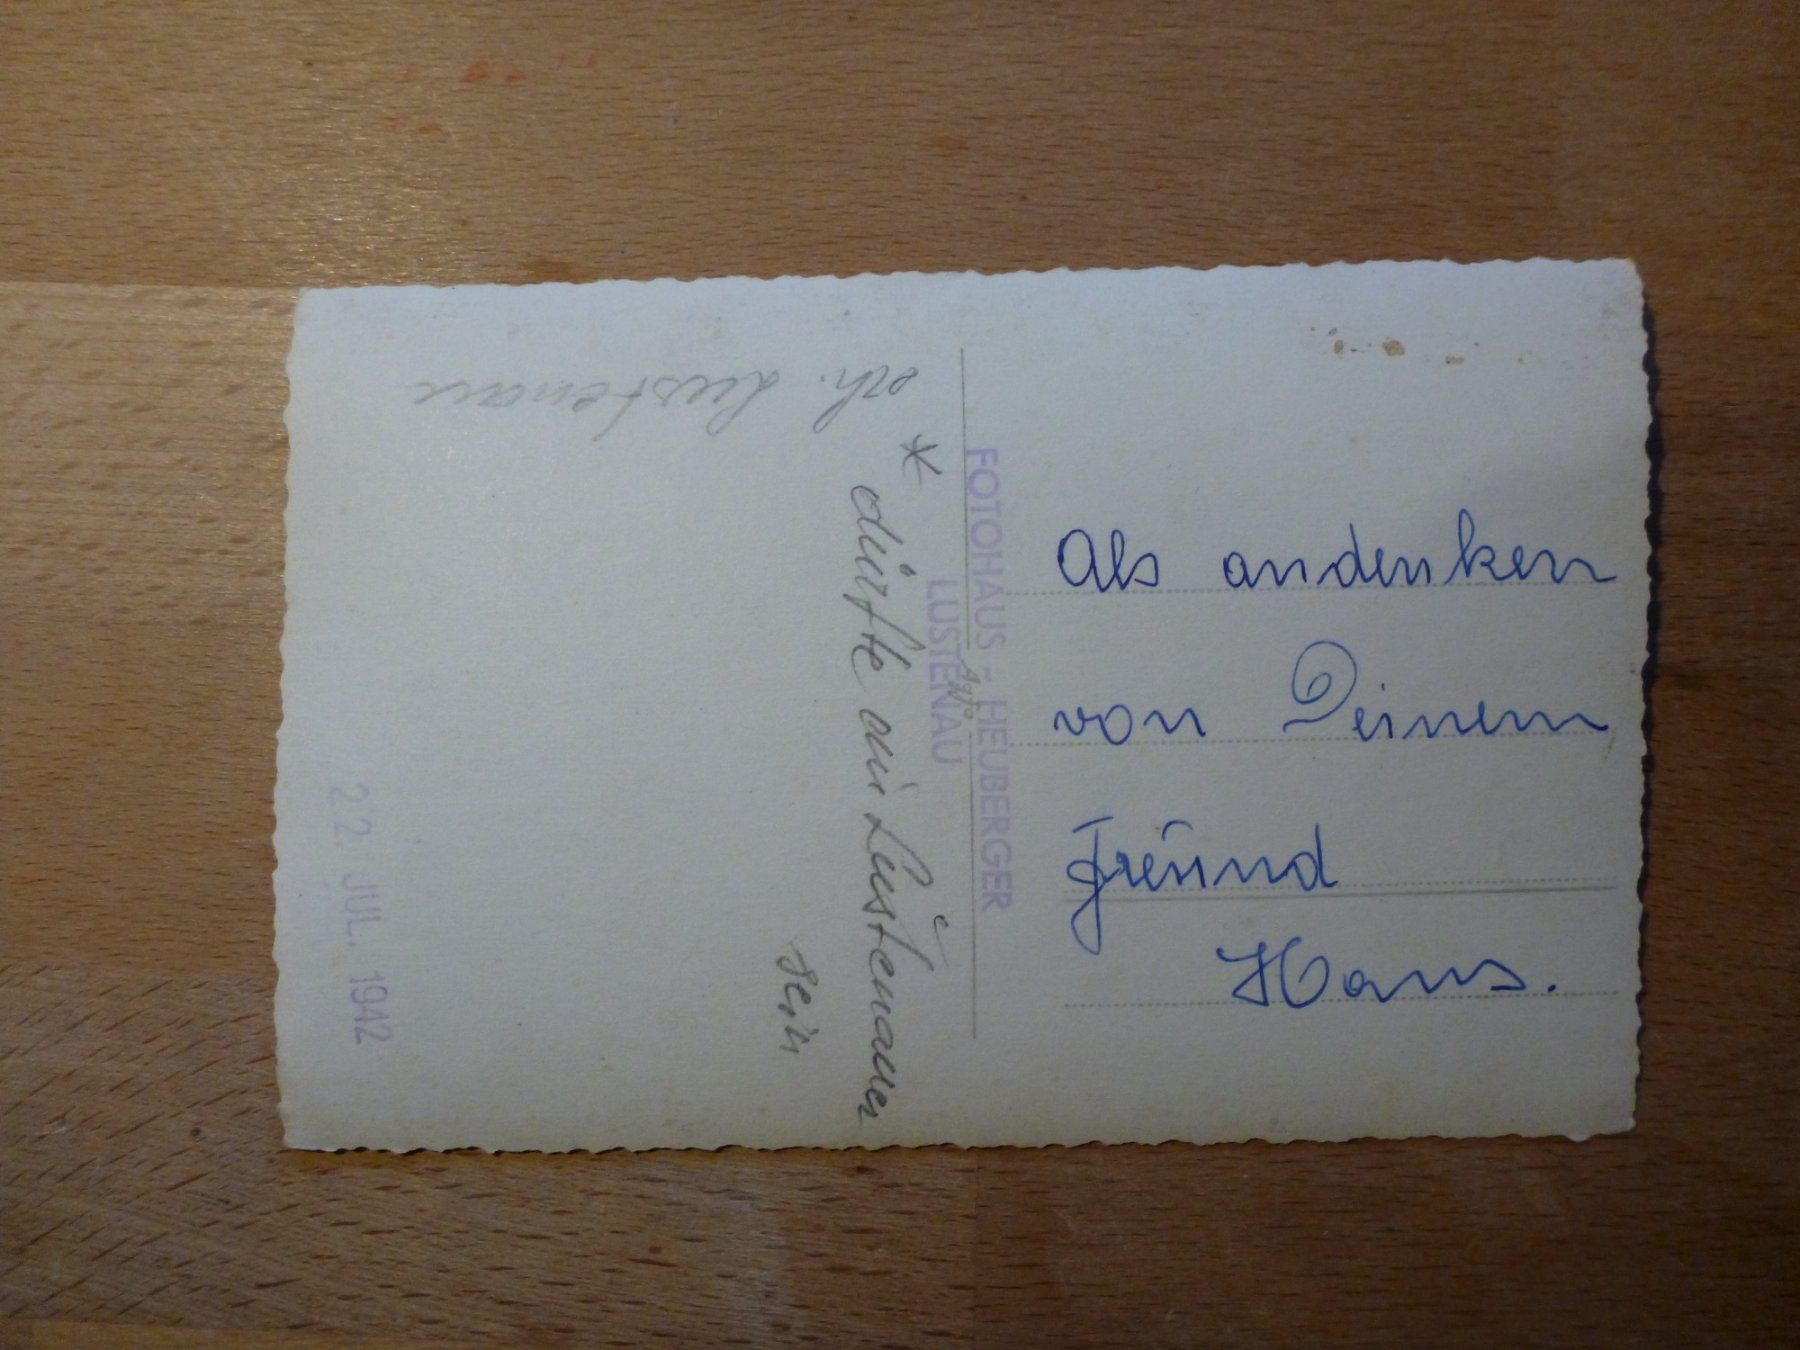 Als andenken
von Deinem
Freund
Hans.
FOTOHAUS - HEUBERGER
LUSTENAU
Agfa
* dürfte ein Lustenauer
sein
Lustenau
22. JUL. 1942